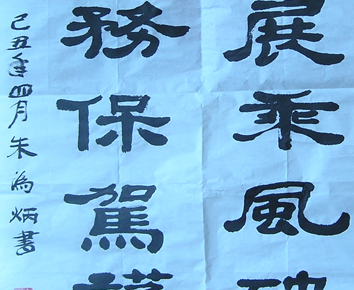 展乘風破
務保駕護
己丑年四月朱為炳書